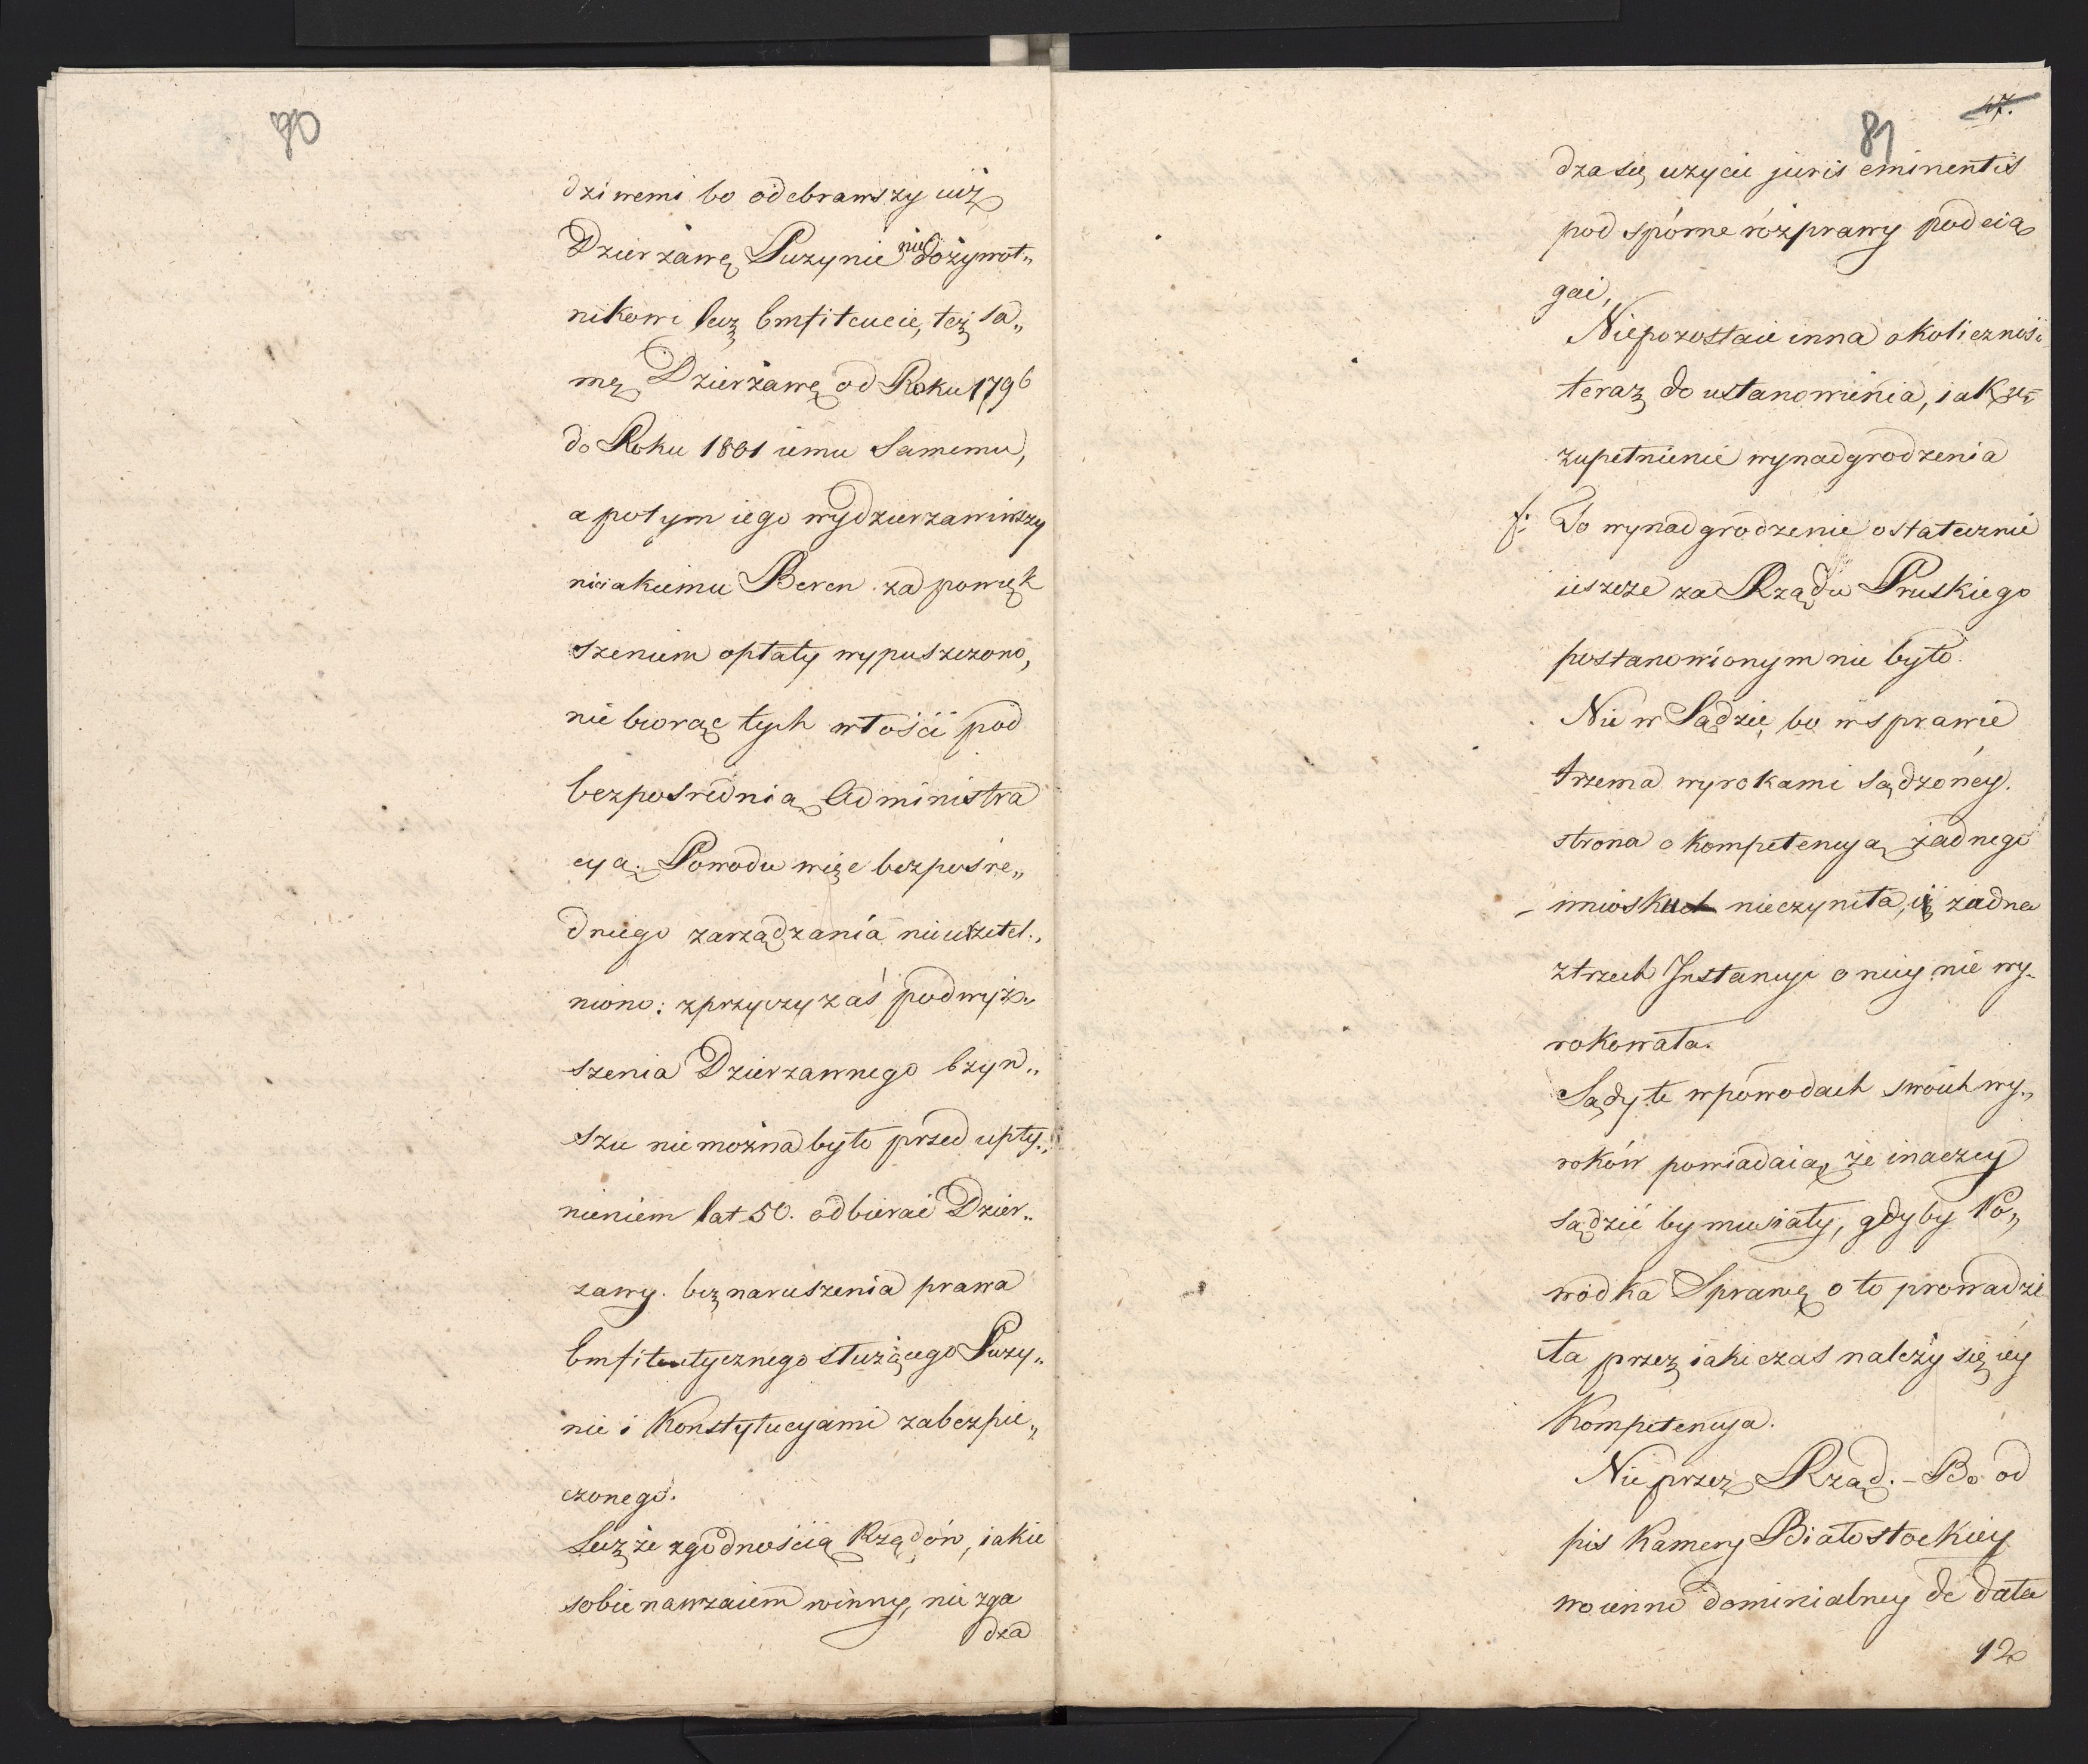 90
dziwemi bo odebrawszy iuż
Dzierżawę Puzynie nie dożywot„
nikowi lecz Emfiteucie, też sa„
mę Dzierżawę od Roku 1796
do Roku 1801 iemu Samemu,
a potym iego wydzierzawiwszy
nieiakiemu Beren za powięk
szeniem opłaty wypuszczono,
nie biorąc tych włości pod
bezpośrednią Administra
cyą. Powodu więc bezpośre„
dniego zarządzania nieurzetel„
niono: z przyczy zaś podwyż„
szenia Dzierzawnego Czyn„
szu nie można było przed upły„
nieniem lat 50. odbierać Dzier„
zawy. bez naruszenia prawa
Emfiteutycznego służącego Puzy„
nie i Konstytucyami zabezpie„
czonego.
Lecz że zgodnością Rządów, iakie
sobie nawzaiem winny, nie zga
dza
47.
81
dza się użycie juris eminentis
pod spórne rózprawy podcią
gać,
Niepozostaie inna okoliczność
teraz do ustanowienia, iak u„
zupełnienie wynadgrodzenia
f: To wynadgrodzenie ostatecznie
ieszcze za Rządu Pruskiego
postanowionym nie było.
Nie w Sądzie, bo w sprawie
trzema wyrokami sądzoney.
strona o kompetencyą żadnego
wniosku nieczyniła, iż żadna
z trzech Instancyi o niey nie wy„
rokowała.
Sądy te w powodach swoich wy„
roków powiadaią, że inaczey
sądzić by musiały, gdyby Po„
wódka Sprawę o to prowadzi
ła przez iaki czas należy się iey
Kompetencya.
Nie przez Rząd. – Bo od
pis Kamery Białostockiey
woienno dominialney de dato
12